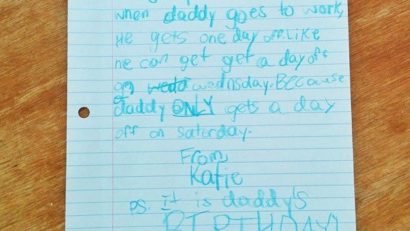 when daddy goes to work,
He gets one day off. Like
he can get get a day off
on wedd wednsday. BEcause
daddy ONLY gets a day
off on saturday.
From
Katie
PS. It is daddy's
BIRTHDAY!